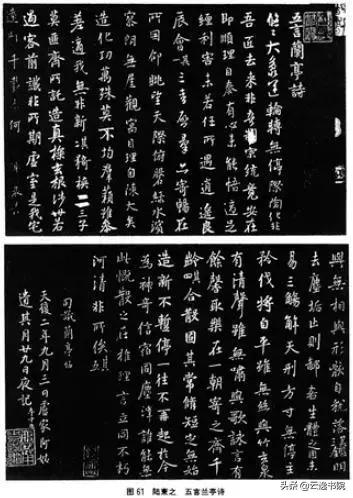 五言蘭亭詩
悠悠大象運輪轉無停際陶化非
吾匠去來非吾制宗統竟安在
即順理自泰有心未能悟適足
纏利害未若任所遇逍遙良
辰會三春啟群品寄暢在
所因仰眺望天際俯磐綠水濱
寥朗無厓觀寓目理自陳大矣
造化功萬殊莫不均群籟雖參
差適我無非新猗與二三子
莫匪齊所託造真探玄根涉世若
過客前識非所期虛室是我宅
遠想千載外何
與無相與形骸自脫落鑒明
去塵垢止則鄙吝生體之固未
易三觴解天刑方寸無停主
矜伐將自平雖無絲與竹玄泉
有清聲雖無嘯與歌詠言有
餘馨取樂在一朝寄之齊千
齡合散固其常脩短定無始
造新不暫停一往不再起於今
為神奇信宿同塵滓誰能無
此慨散之在推理言立同不朽
河清非所俟
蘭亭帖
天復二年九月三日
遺其月廿九日夜記
图 61 陆柬之 五言兰亭诗
头条 @云逸书院